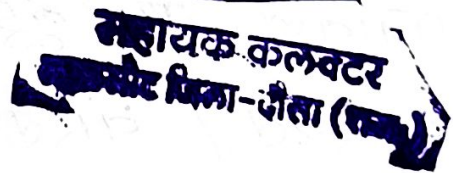 सहायक कलक्टर
जिला-दौसा (राज०)